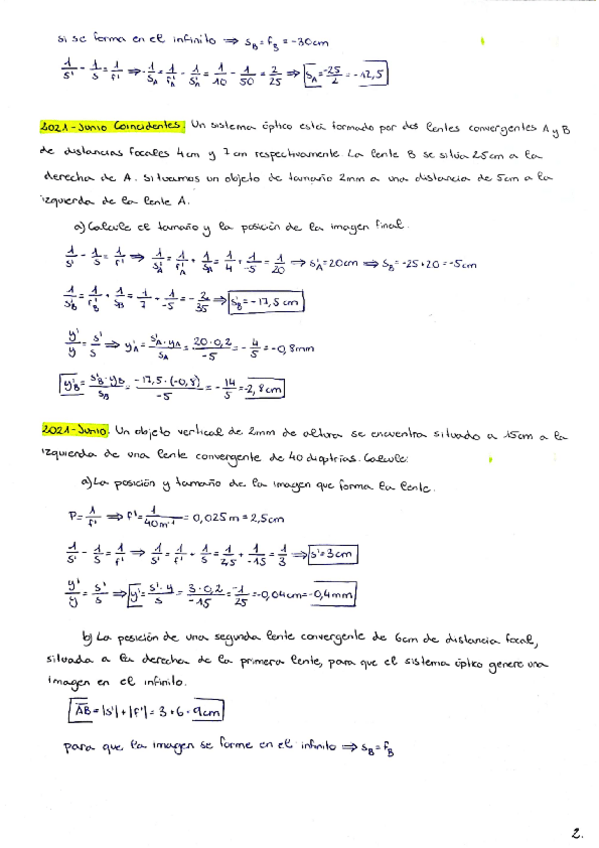 si se forma en el infinito ⇒ s_B = f_B = -30cm
1/s' - 1/s = 1/f' ⇒ 1/s_A = 1/f'_A - 1/s'_A = 1/10 - 1/50 = 2/25 ⇒ s_A = -25/2 = -12,5
2021-Junio Coincidentes. Un sistema óptico está formado por dos lentes convergentes A y B
de distancias focales 4cm y 7cm respectivamente. La lente B se sitúa 25cm a la
derecha de A. Situamos un objeto de tamaño 2mm a una distancia de 5cm a la
izquierda de la lente A.
a) Calcule el tamaño y la posición de la imagen final.
1/s' - 1/s = 1/f' ⇒ 1/s'_A = 1/f'_A + 1/s_A = 1/4 + 1/-5 = 1/20 ⇒ s'_A = 20cm ⇒ s_B = -25+20 = -5cm
1/s'_B = 1/f'_B + 1/s_B = 1/7 + 1/-5 = -2/35 ⇒ s'_B = -17,5cm
y'/y = s'/s ⇒ y'_A = s'_A·y_A/s_A = 20·0,2/-5 = -4/5 = -0,8mm
y'_B = s'_B·y_B/s_B = -17,5·(-0,8)/-5 = -14/5 = -2,8cm
2021-Junio. Un objeto vertical de 2mm de altura se encuentra situado a 15cm a la
izquierda de una lente convergente de 40 dioptrías. Calcule:
a) La posición y tamaño de la imagen que forma la lente.
P = 1/f' ⇒ f' = 1/40m⁻¹ = 0,025m = 2,5cm
1/s' - 1/s = 1/f' ⇒ 1/s' = 1/f' + 1/s = 1/2,5 + 1/-15 = 1/3 ⇒ s' = 3cm
y'/y = s'/s ⇒ y' = s'·y/s = 3·0,2/-15 = -1/25 = -0,04cm = -0,4mm
b) La posición de una segunda lente convergente de 6cm de distancia focal,
situada a la derecha de la primera lente, para que el sistema óptico genere una
imagen en el infinito.
AB = |s'| + |f'| = 3+6 = 9cm
para que la imagen se forme en el infinito ⇒ s_B = f_B
2.